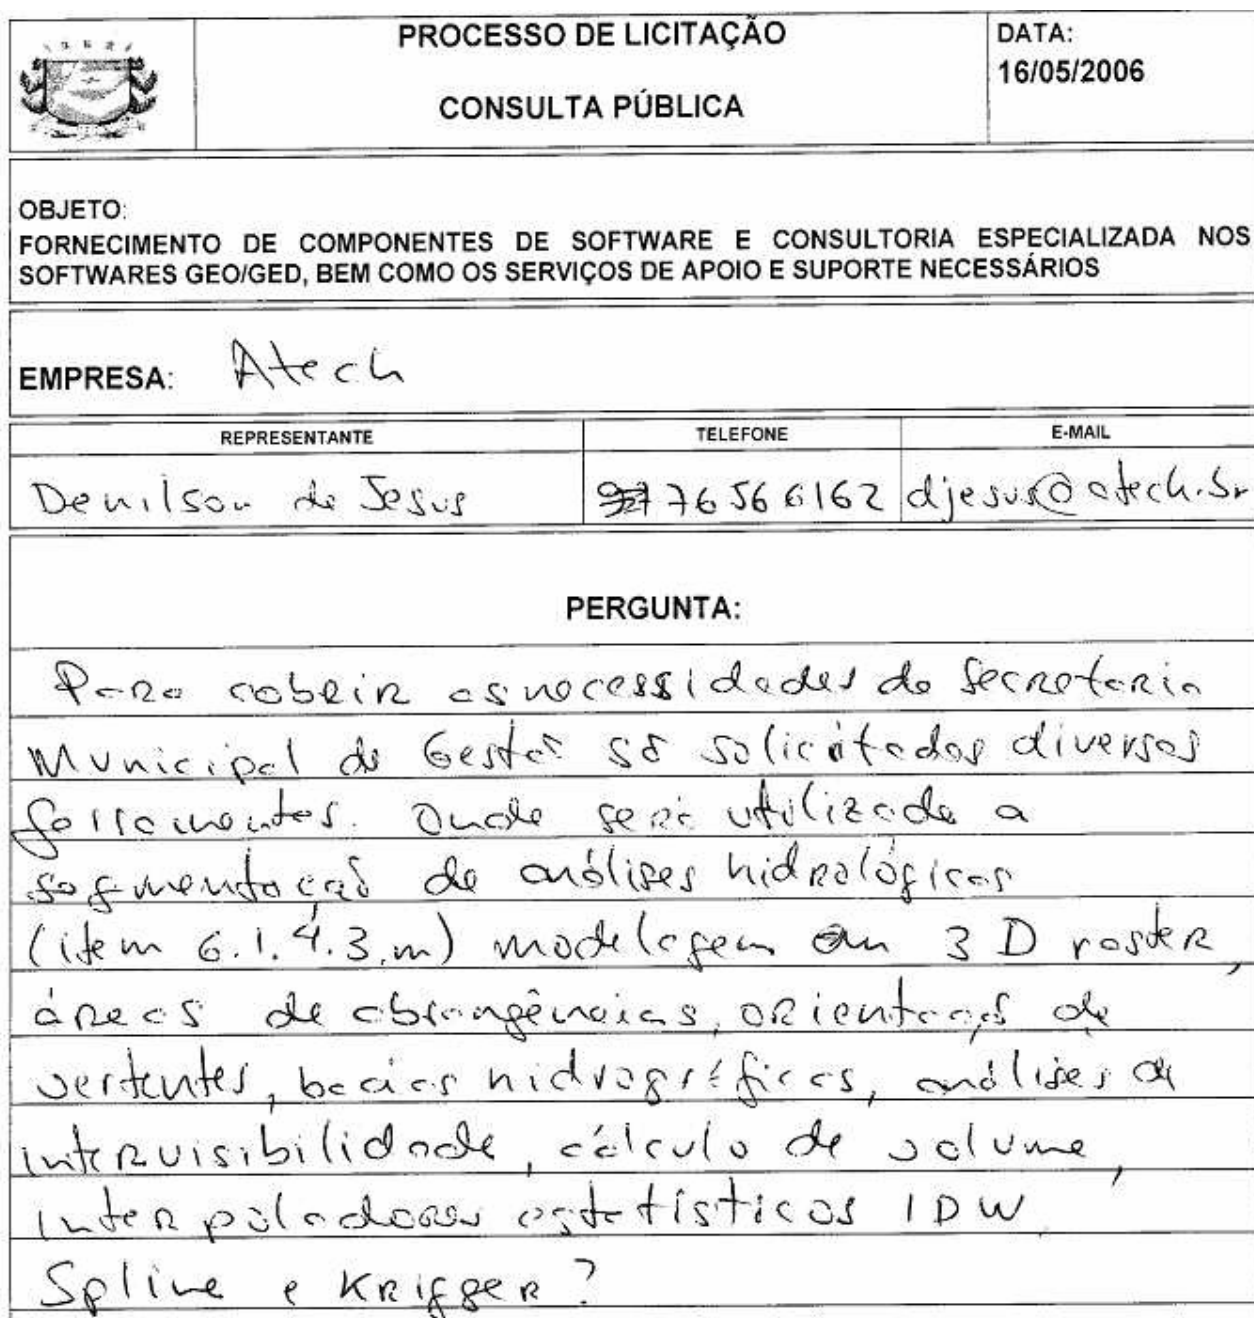 PROCESSO DE LICITAÇÃO
CONSULTA PÚBLICA
DATA:
16/05/2006
OBJETO:
FORNECIMENTO DE COMPONENTES DE SOFTWARE E CONSULTORIA ESPECIALIZADA NOS
SOFTWARES GEO/GED, BEM COMO OS SERVIÇOS DE APOIO E SUPORTE NECESSÁRIOS
EMPRESA: Atech
REPRESENTANTE
TELEFONE
E-MAIL
Denilson de Jesus
76566162
djesus@atech.br
PERGUNTA:
Para cobrir as necessidades da Secretaria
Municipal de Gestão são solicitadas diversas
ferramentas. Onde será utilizada a
segmentação de análises hidrológicas
(item 6.1.4.3.m) modelagem em 3D raster,
áreas de abrangências, orientação de
vertentes, bacias hidrográficas, análises de
intervisibilidade, cálculo de volume,
interpoladores estatísticos IDW
Spline e Krigger?